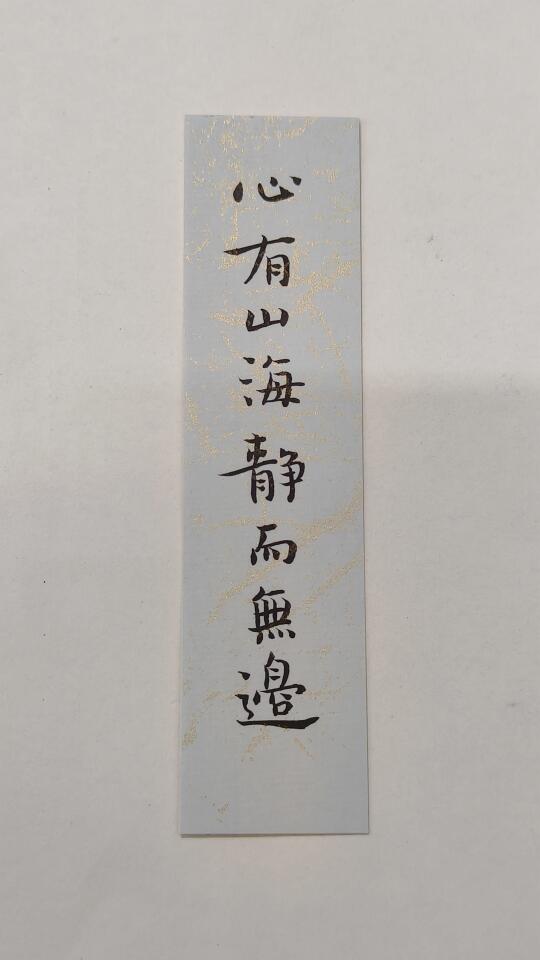 心有山海静而無邊